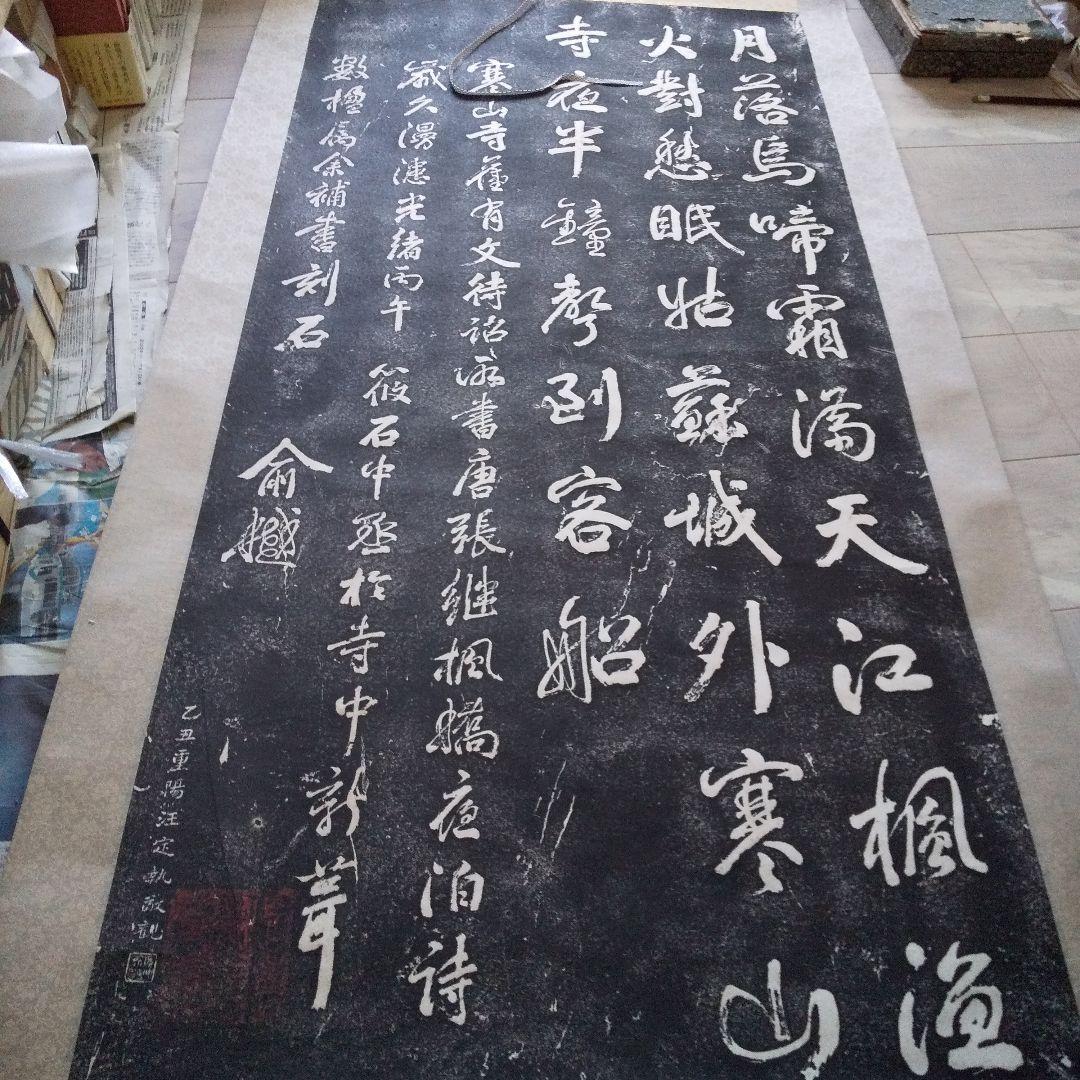 月落烏啼霜滿天江楓漁
火對愁眠姑蘇城外寒山
寺夜半鐘聲到客船
寒山寺舊有文待詔所書唐張継楓橋夜泊詩
歲久漫漶光緒丙午筱石中丞於寺中新葺
數楹屬余補書刻石
俞樾
乙丑重陽汪定執敬觀